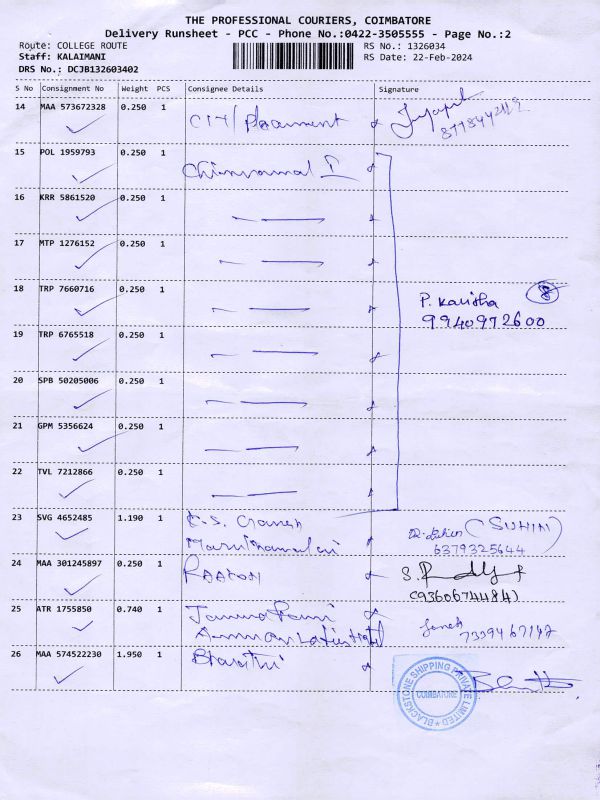 THE PROFESSIONAL COURIERS, COIMBATORE
Delivery Runsheet - PCC - Phone No.:0422-3505555 - Page No.:2
Route: COLLEGE ROUTE RS No.: 1326034
Staff: KALAIMANI RS Date: 22-Feb-2024
DRS No.: DCJB132603402
S No Consignment No Weight PCS Consignee Details Signature
14 MAA 573672328 0.250 1 CIT/
15 POL 1959793 0.250 1
16 KRR 5861520 0.250 1
17 MTP 1276152 0.250 1
18 TRP 7660716 0.250 1 P. Kavitha 8
9940972600
19 TRP 6765518 0.250 1
20 SPB 50205006 0.250 1
21 GPM 5356624 0.250 1
22 TVL 7212866 0.250 1
23 SVG 4652485 1.190 1 K.S. (SUHIN)
6379325644
24 MAA 301245897 0.250 1 S.
(9360674484)
25 ATR 1755850 0.740 1
Amman
26 MAA 574522230 1.950 1 Bharathi
BLACKSTONE SHIPPING PRIVATE LIMITED
COIMBATORE